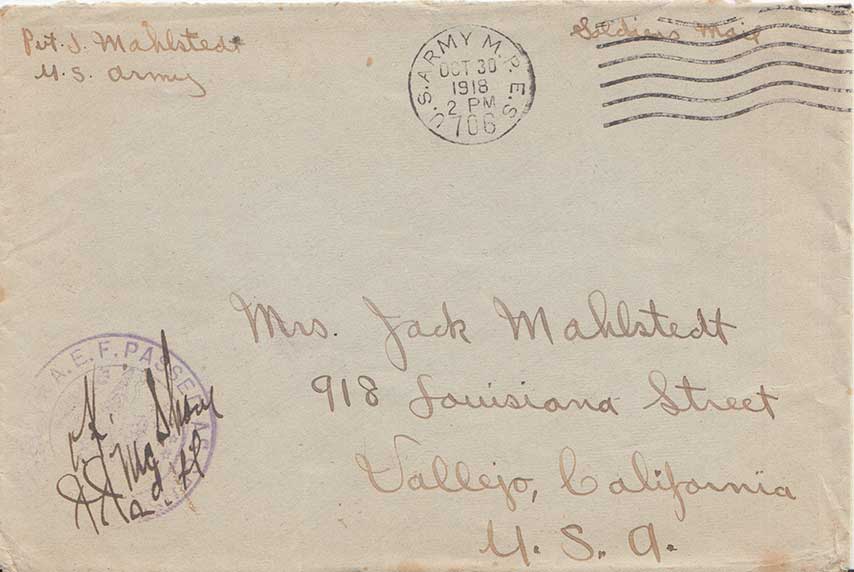 Pvt. J. Mahlstedt
U.S. Army
Soldiers Mail
U.S. ARMY M.P.E.S.
OCT 30
1918
2 PM
706
Mrs. Jack Mahlstedt
918 Louisiana Street
Vallejo, California
U. S. A.
A.E.F. PASSED